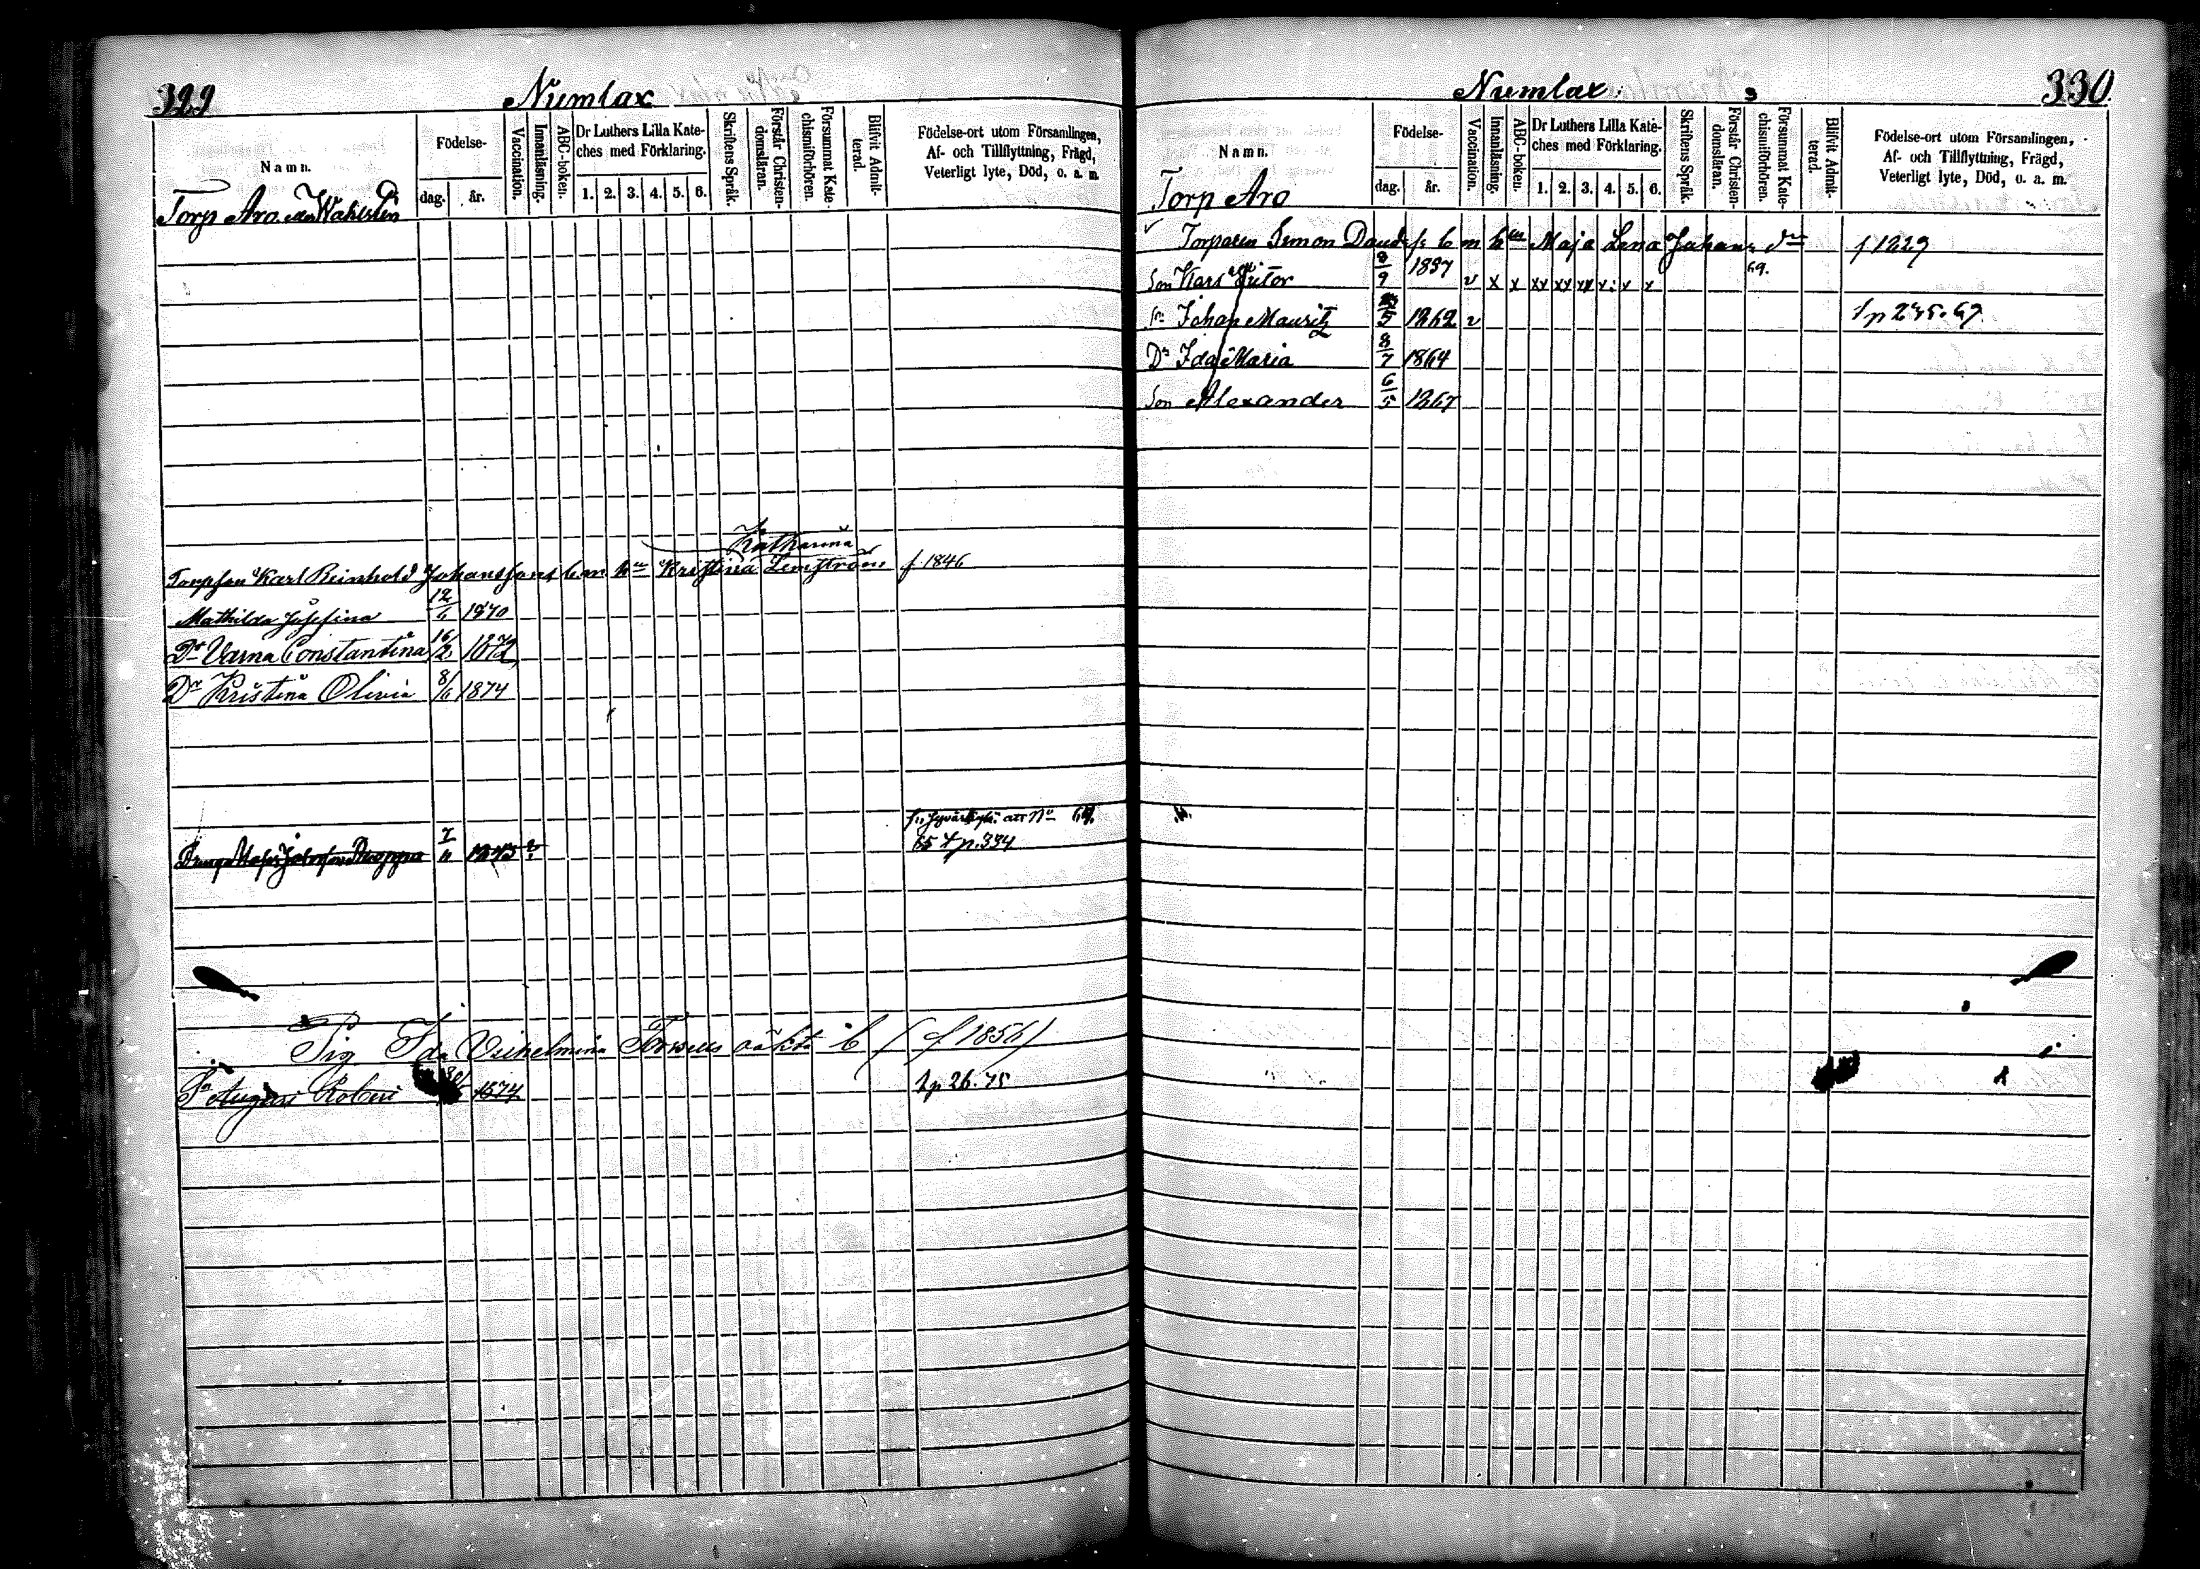 329
Numlax
Namn.
Födelse-
dag.
år.
Vaccination.
Innanläsning.
ABC-boken.
Dr Luthers Lilla Kate-
ches med Förklaring.
1. 2. 3. 4. 5. 6.
Skriftens Språk.
Förstår Christen-
domsläran.
Försummat Kate-
chismiförhören.
Blifvit Admit-
terad.
Födelse-ort utom Församlingen,
Af- och Tillflyttning, Frägd,
Veterligt lyte, Död, o. a. m.
Torp Aro
Katharina
Torpson Karl Reinhold Johanssons b. m. hu Kristina Lemström f 1846
Mathilda Josefina 12/6 1870
Dr Varna Constantina 16/2 1872
Dr Kristina Olivia 8/6 1874
att No 69.
65 fp. 334
Pig Ida Vilhelmina oäkta b (f 1856)
So August Robert 1874 fp 26. 75
330.
Numlax
Namn.
Födelse-
dag.
år.
Vaccination.
Innanläsning.
ABC-boken.
Dr Luthers Lilla Kate-
ches med Förklaring.
1. 2. 3. 4. 5. 6.
Skriftens Språk.
Förstår Christen-
domsläran.
Försummat Kate-
chismiförhören.
Blifvit Admit-
terad.
Födelse-ort utom Församlingen,
Af- och Tillflyttning, Frägd,
Veterligt lyte, Död, o. a. m.
Torp Aro
Torparen Simon Davids s. b m hu Maja Lena Johans dr f 1829
Son Karl Victor 8/9 1857 v x x xx xx xx x x x 69.
Sn Johan Mauritz 1862 v fp 235. 69
Dr Ida Maria 8/7 1864
Son Alexander 6/5 1867